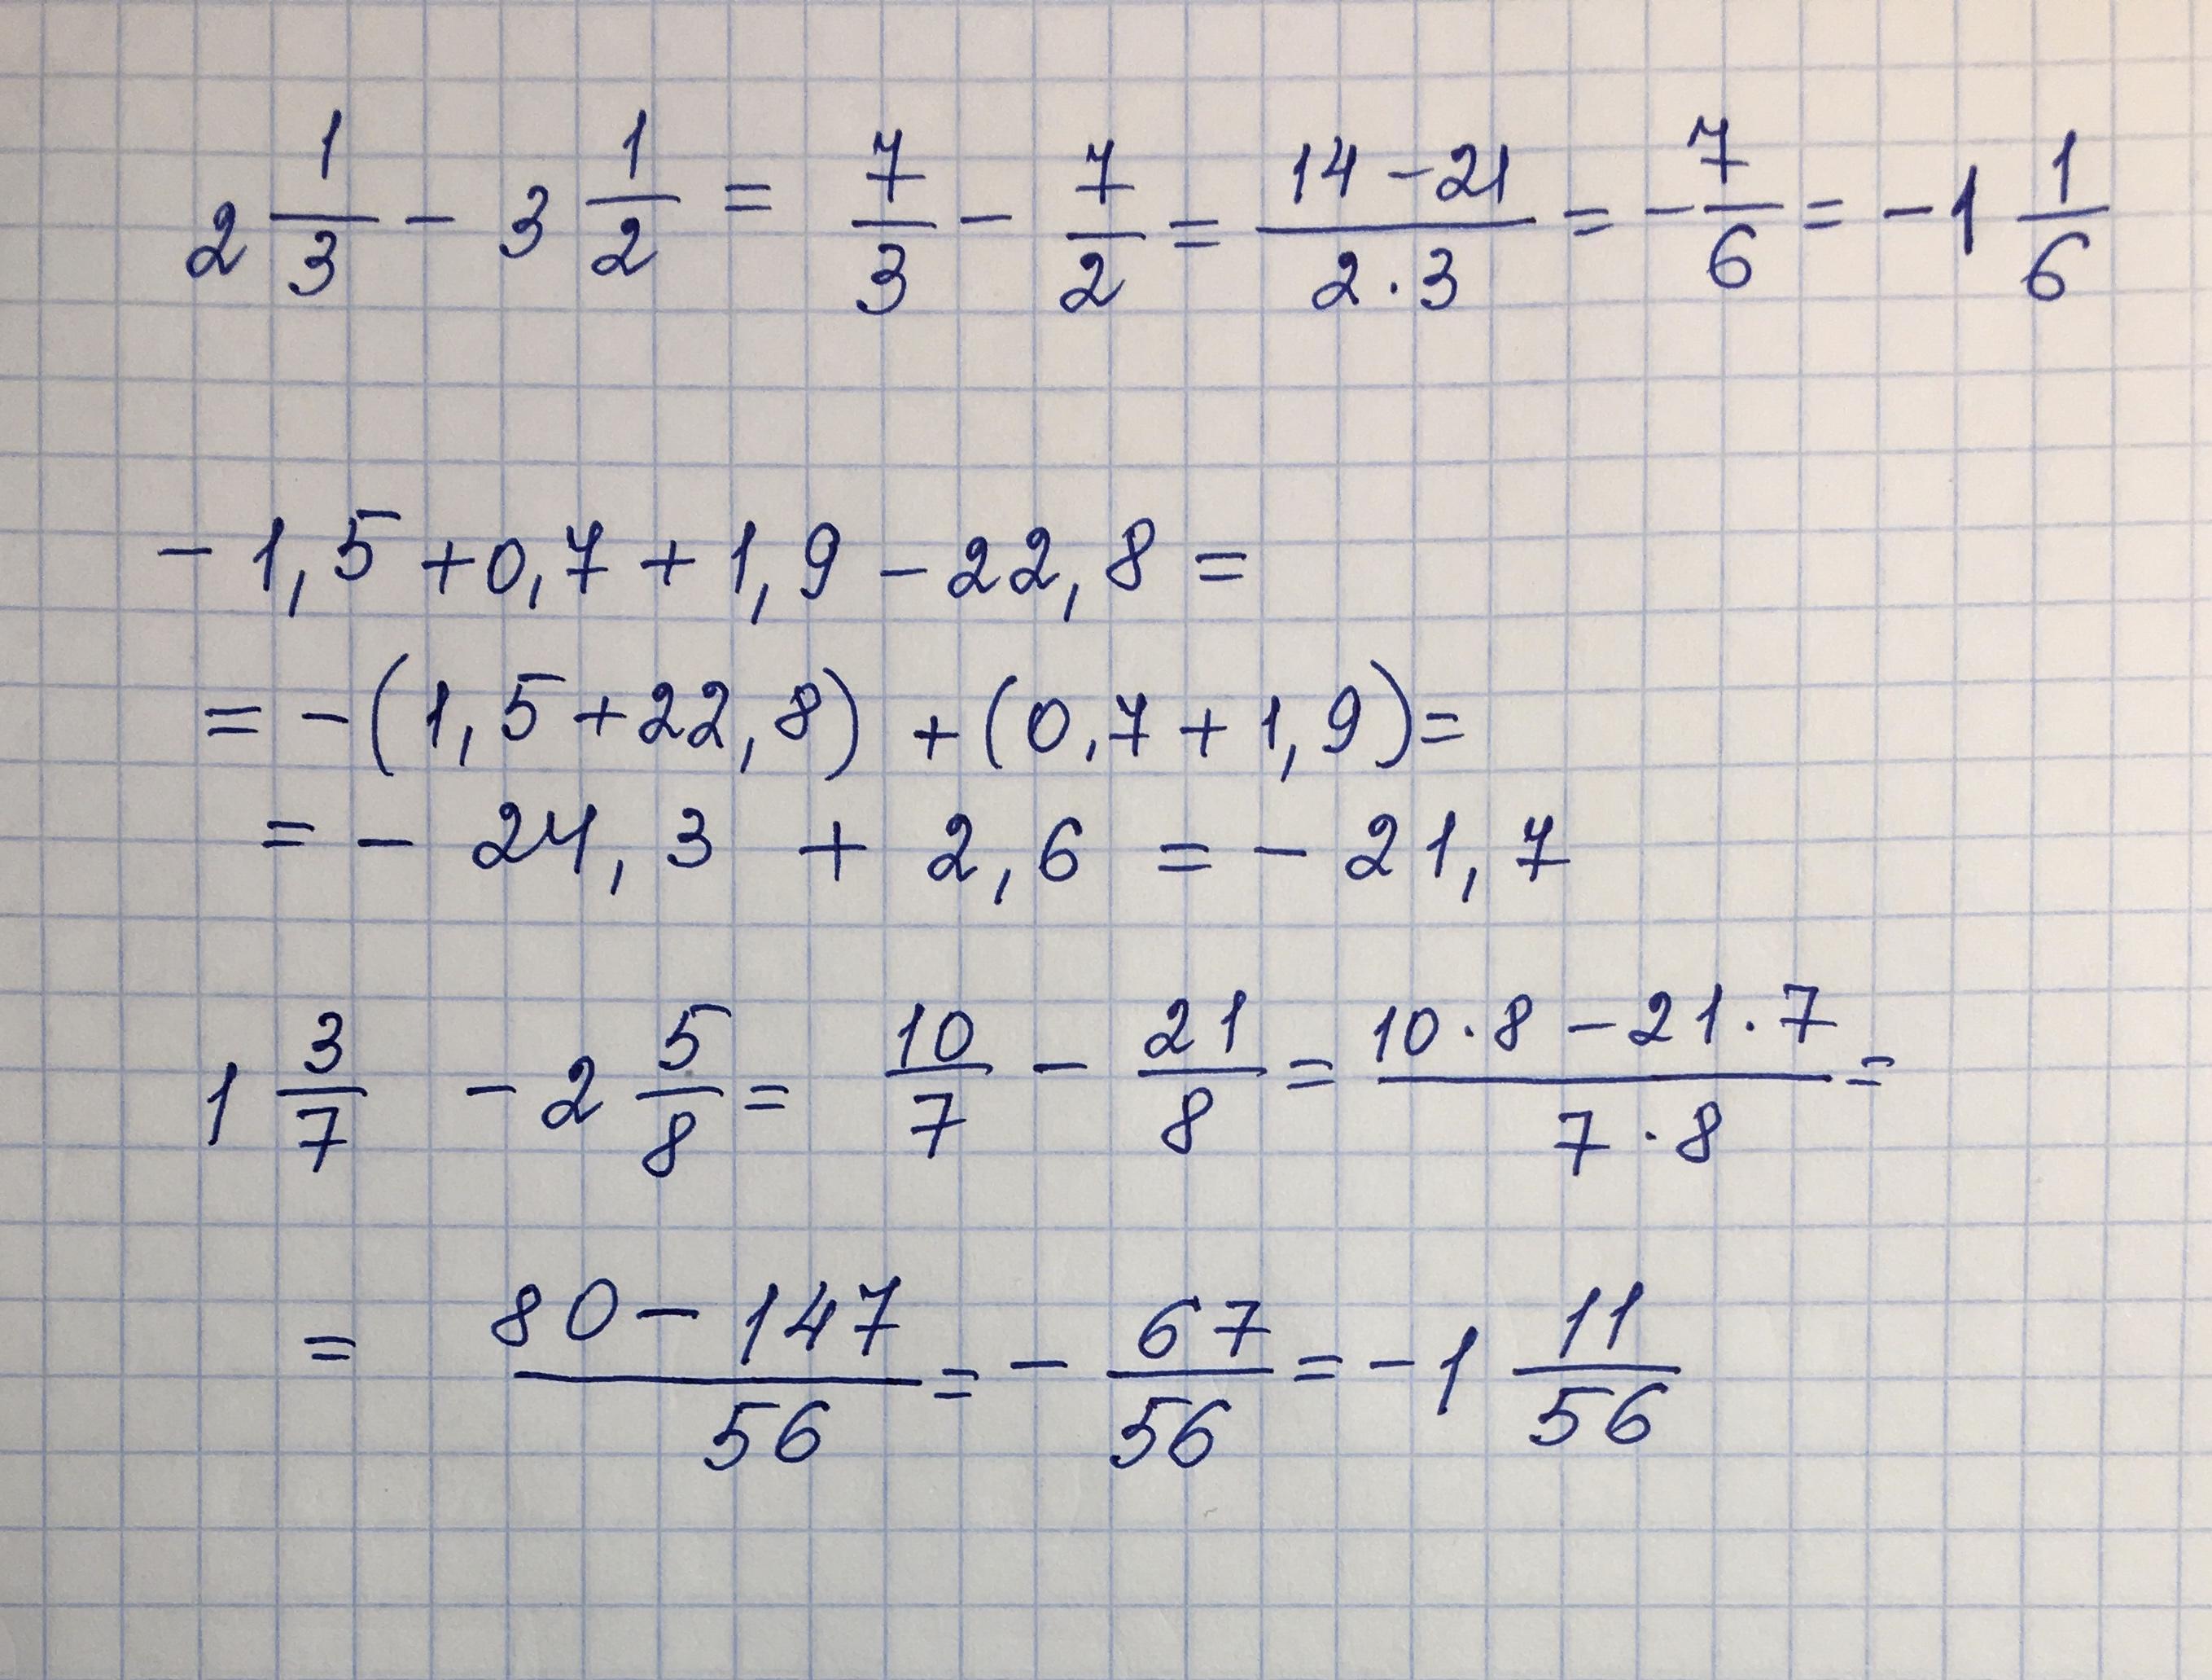 2 1/3 - 3 1/2 = 7/3 - 7/2 = (14 - 21)/(2 · 3) = - 7/6 = - 1 1/6
- 1,5 + 0,7 + 1,9 - 22,8 =
= - (1,5 + 22,8) + (0,7 + 1,9) =
= - 24,3 + 2,6 = - 21,7
1 3/7 - 2 5/8 = 10/7 - 21/8 = (10 · 8 - 21 · 7)/(7 · 8) =
= (80 - 147)/56 = - 67/56 = - 1 11/56